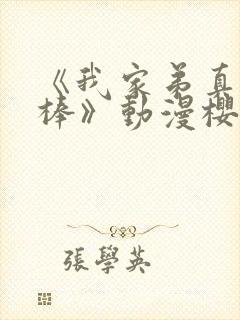 《我家弟真
棒》動漫櫻
張學英